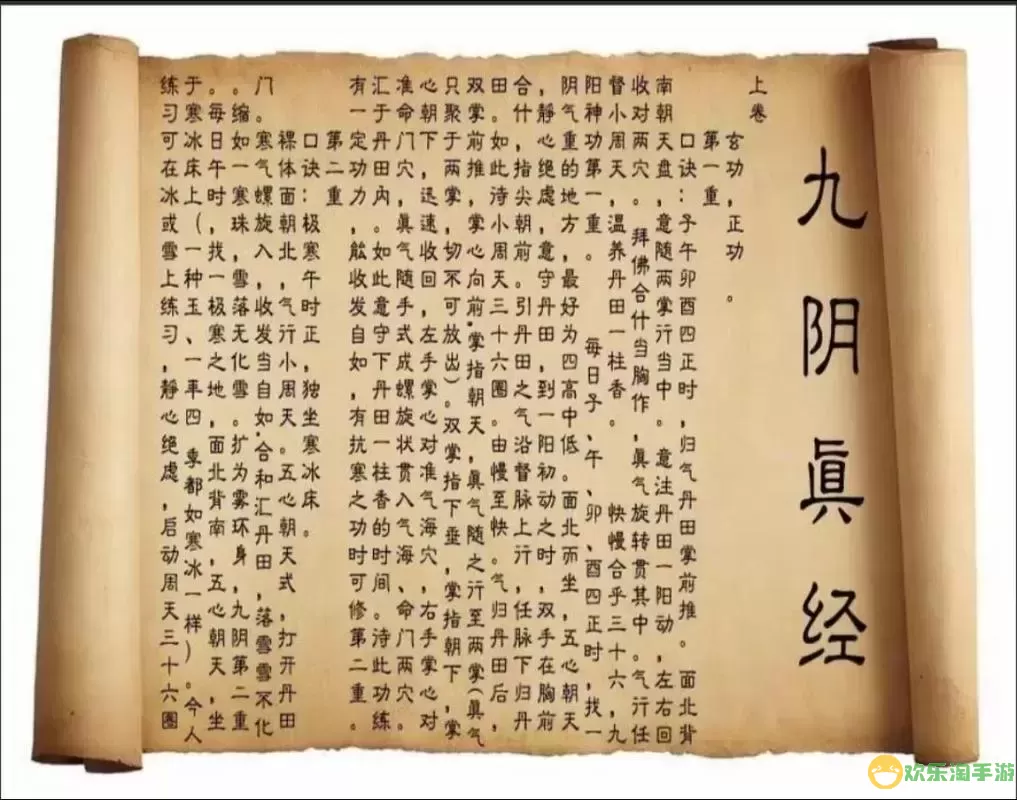 九阴眞经
上卷
玄功,正功。
第一重
口诀:子午卯酉四正时,归气丹田掌前推。面北背
南朝天盘,意随两掌行当中。意注丹田一阳动,左右回
收对两穴。拜佛合什当胸作,眞气旋转贯其中。气行任
督小周天,温养丹田一柱香。快慢合乎三十六,九
阳神功第一重。每日子、午、卯、酉四正时,找一
阴气重的地方,最好为四高中低。面北而坐,五心朝天
,静心绝虑,意守丹田,到一阳初动之时,双手在胸前
合什,指尖朝前。引丹田之气沿督脉上行,任脉下归丹
田。如此待小周天三十六圈。由慢至快。气归丹田后,
双掌前推,掌心向前,掌指朝天,眞气随之行至两掌(眞气
只聚于两掌,切不可放出)。双掌指下垂,掌指朝下,掌
心朝下,迅速收回,左手掌心对准气海穴,右手掌心对
准命门穴,眞气随手式成螺旋状贯入气海、命门两穴。
汇于丹田内。如此意守下丹田一柱香的时间。待此功练
有一定功力,能收发自如,有抗寒之功时可修第二重。
第二重
口诀:极寒午时正,独坐寒冰床。
裸体面朝北,气行小周天。五心朝天式,打开丹田
门。寒气螺旋入,收发当自如.合和汇丹田,落雪雪不化
。缩如一寒珠,雪落无化雪。扩为雾环身,九阴第二重
。每日午时,找一极寒之地,面北背南,五心朝天,坐
于寒冰床上(一种玉、一年四季都如寒冰一样)。今人
练习可在冰或雪上练习,静心绝虑,启动周天三十六圈
欢乐淘手游